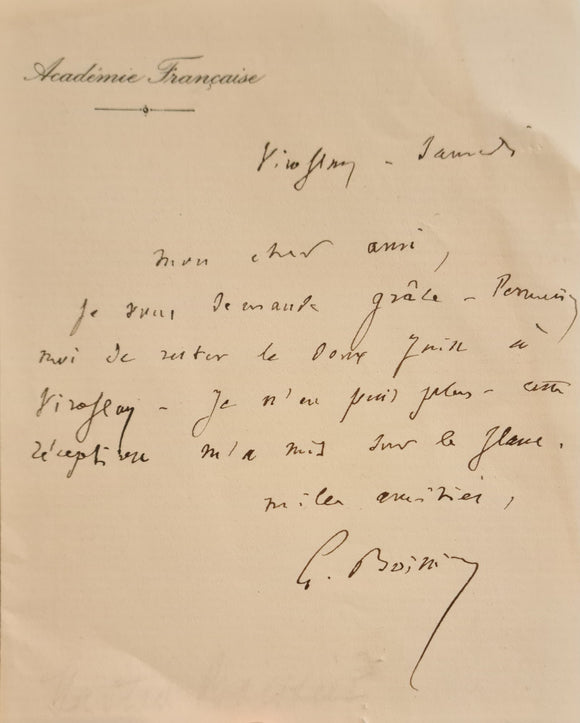 Académie Française
Viroflay - Samedi
mon cher ami,
Je vous demande grâce - Permettez
moi de rester le douze Juin à
Viroflay - Je n'en puis plus - cette
réception m'a mis sur le flanc.
mille amitiés,
G. Boissier